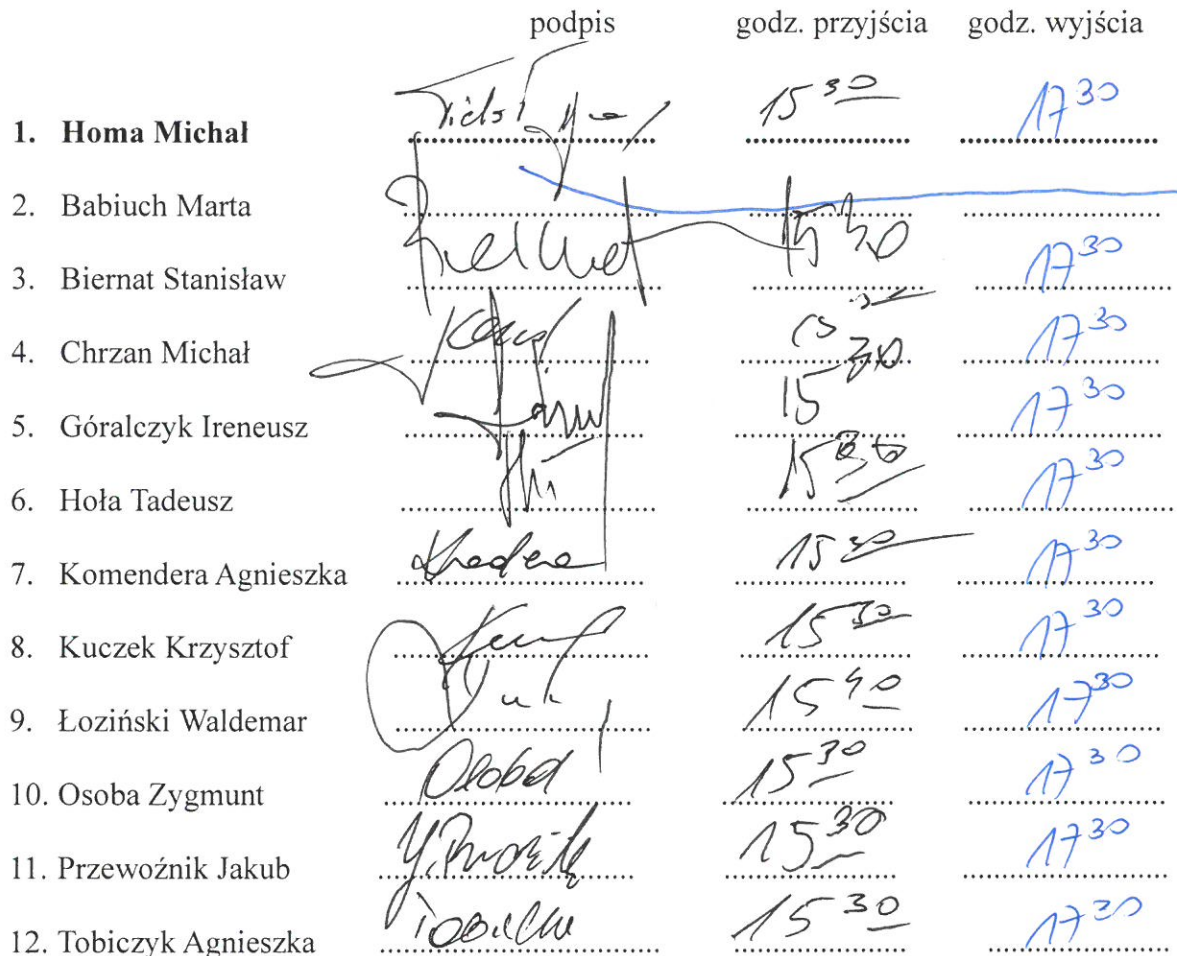 podpis godz. przyjścia godz. wyjścia
1. Homa Michał 15 30 17 30
2. Babiuch Marta
3. Biernat Stanisław 15 30 17 30
4. Chrzan Michał 15 30 17 30
5. Góralczyk Ireneusz 15 30 17 30
6. Hoła Tadeusz 15 30 17 30
7. Komendera Agnieszka 15 30 17 30
8. Kuczek Krzysztof 15 30 17 30
9. Łoziński Waldemar 15 40 17 30
10. Osoba Zygmunt Osoba 15 30 17 30
11. Przewoźnik Jakub 15 30 17 30
12. Tobiczyk Agnieszka 15 30 17 30